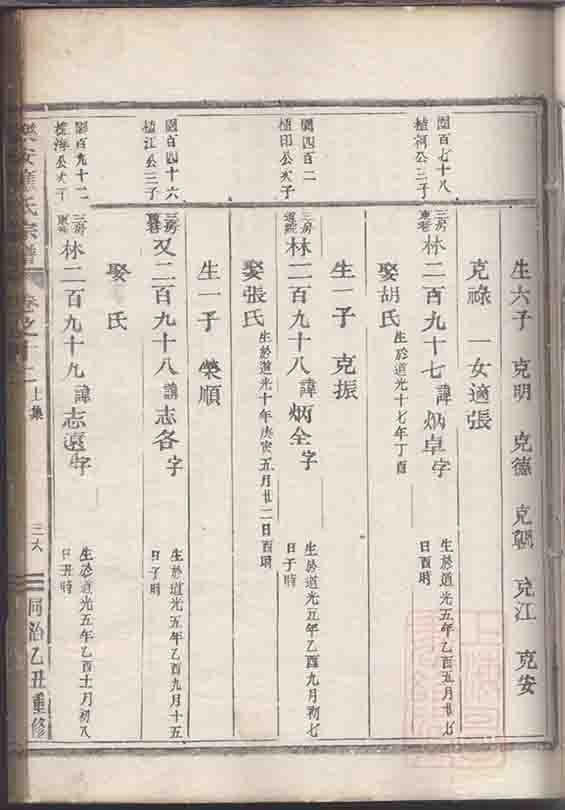 生六子 克明 克德 克朝 克江 克安
克祿 一女適張
園百七十八
植河公三子
三房
東巷
林二百九十七諱炳卓字
生於道光五年乙酉五月廿七
日酉時
娶胡氏
生於道光十七年丁酉
生一子 克振
園四百二
植印公次子
三房
林二百九十八諱炳全字
生於道光五年乙酉九月初七
日子時
娶張氏
生於道光十年庚寅五月廿二日酉時
生一子 榮順
園百四十六
植江公三子
三房
又二百九十八諱志各字
生於道光五年乙酉九月十五
日子時
娶 氏
園百九十二
植海公次子
三房
東巷
林二百九十九諱志遠字
生於道光五年乙酉十一月初八
日丑時
氏宗譜 卷之
上集
三六
同治乙丑重修